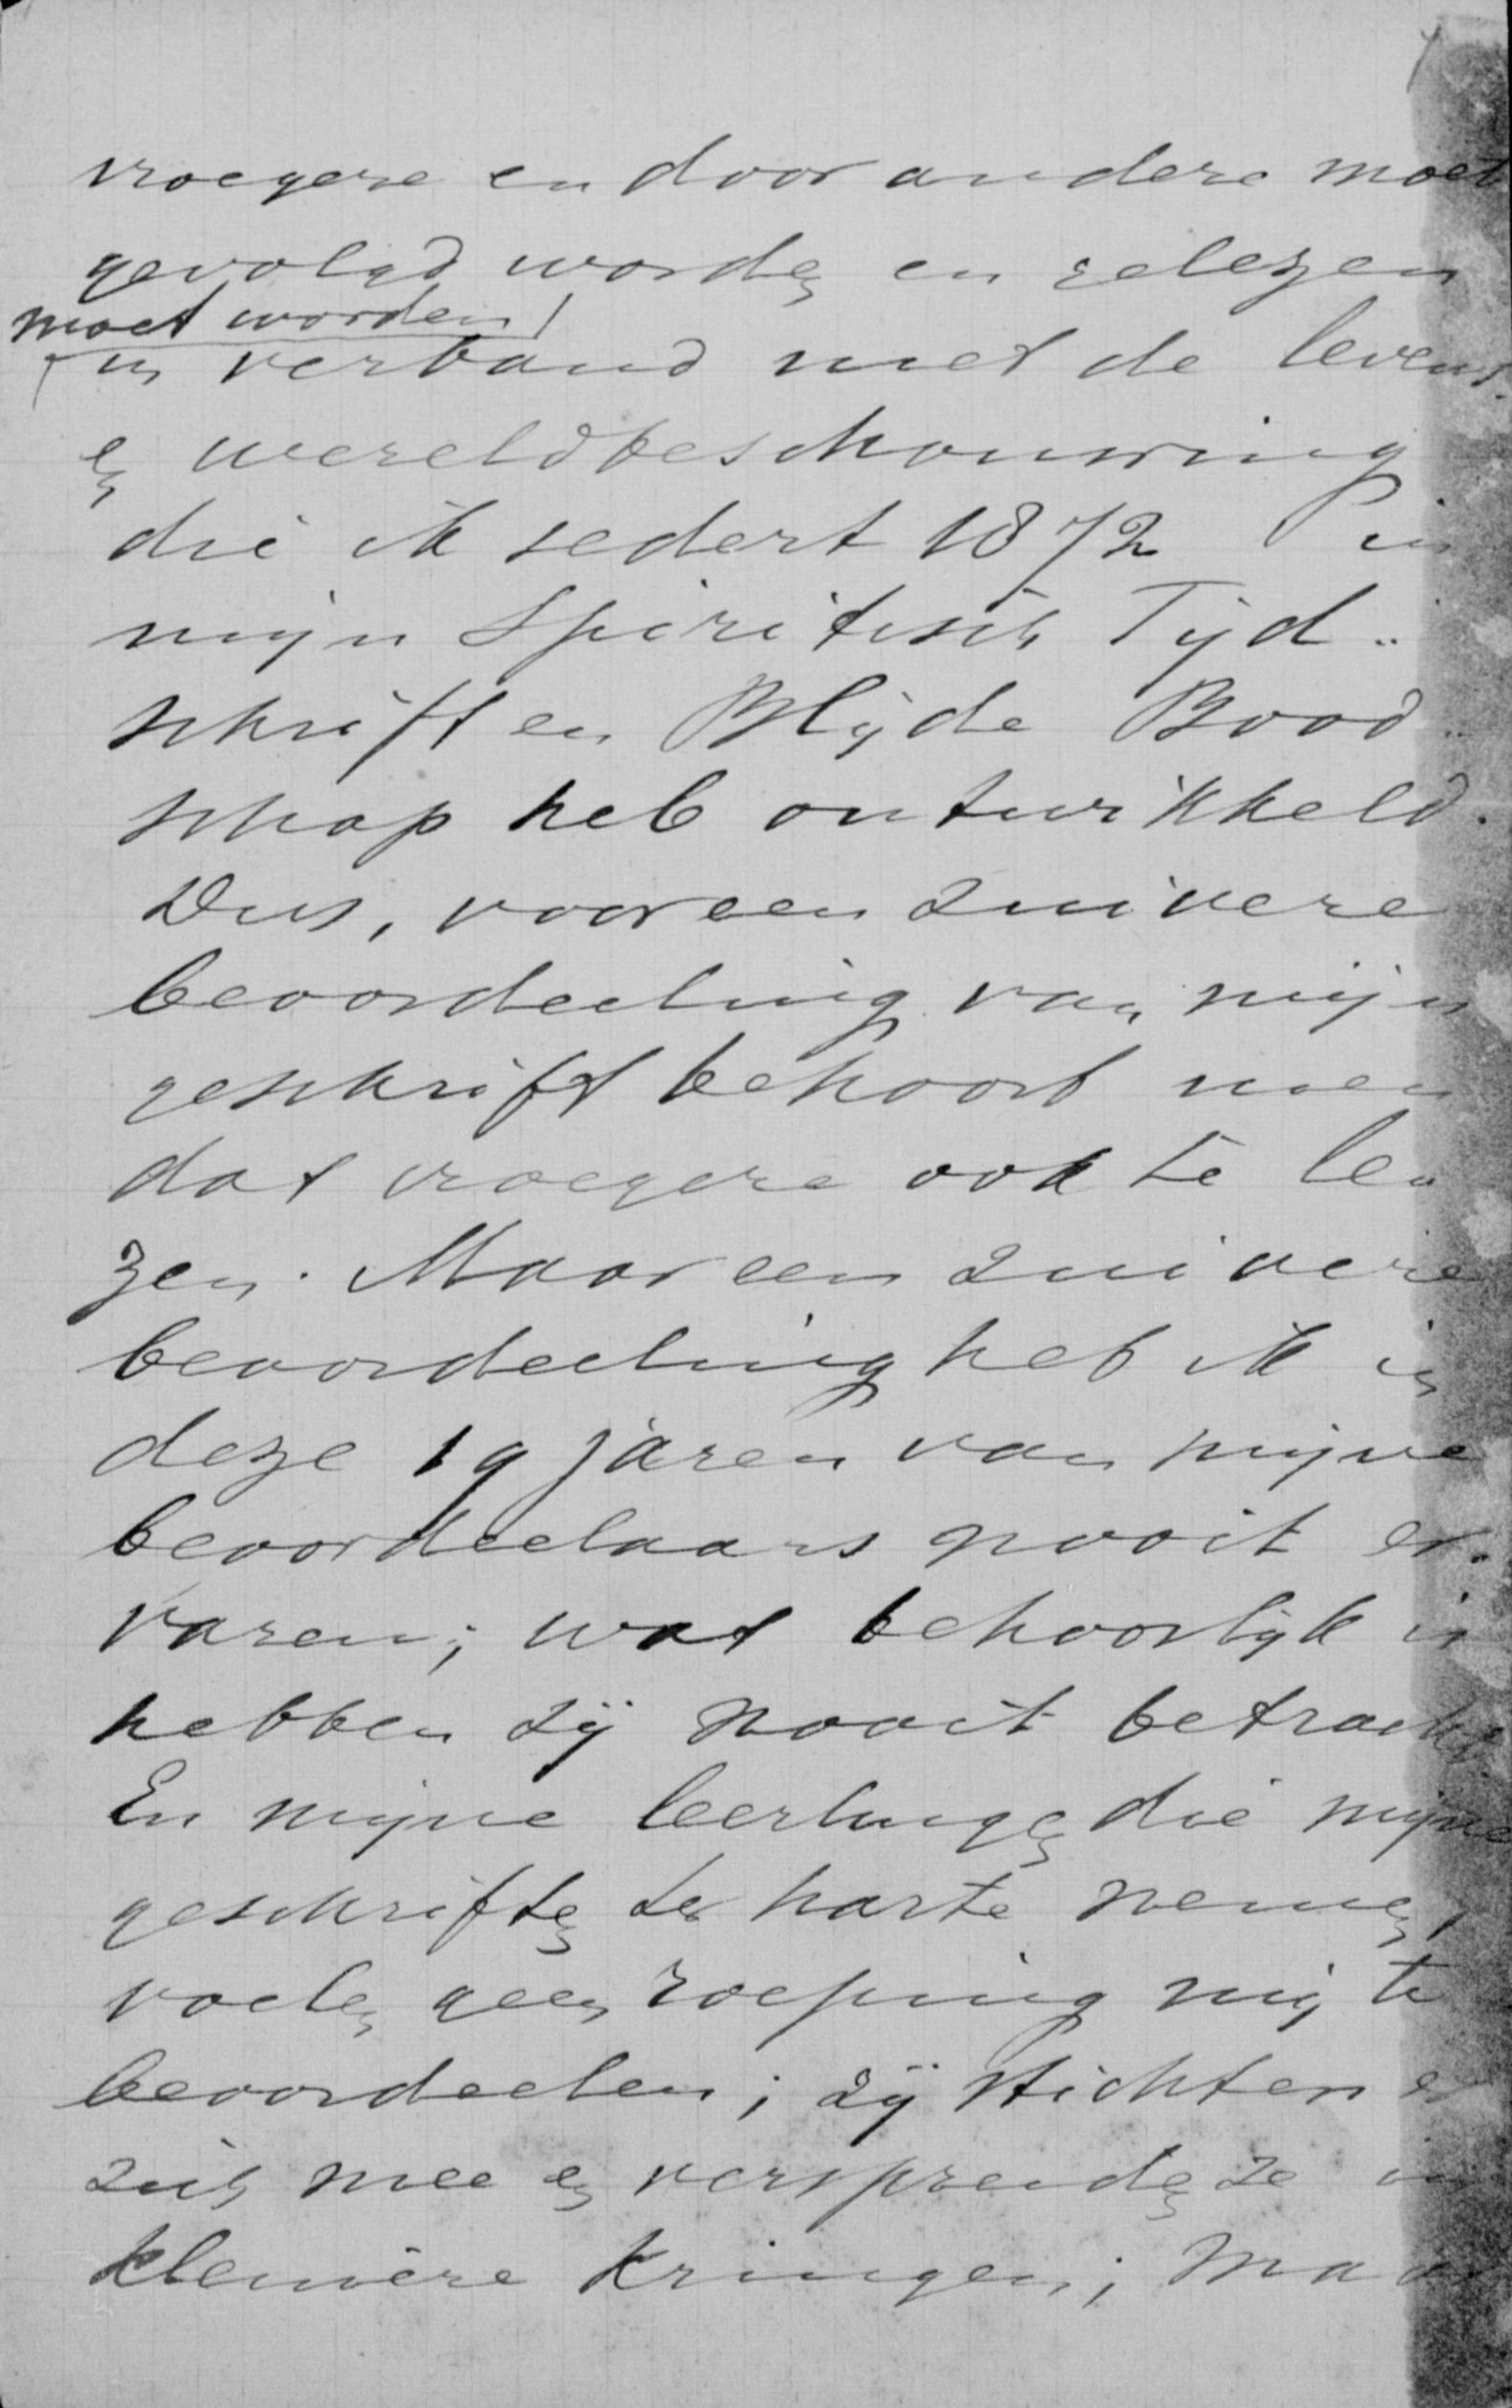 vroegere en door andere moet
gevolgd worden en gelezen
moet worden
in verband met de levens
en wereldbeschouwing
die ik sedert 1872 in
mijn Spiritisch Tijd-
schrift en Blijde Bood-
schap heb ontwikkeld.
Dus, voor een zuivere
beoordeeling van mijn
geschrift behoort men
dat vroegere ook te le-
zen. Maar een zuivere
beoordeeling heb ik in
deze 19 jaren van mijne
beoordeelaars nooit er-
varen; wat behoorlijk is
hebben zij nooit betracht.
En mijne leerlingen die mijne
geschriften ter harte nemen,
voelen geen roeping mij te
beoordeelen; zij stichten er
zich mee en verspreiden ze in
kleinere kringen; maar